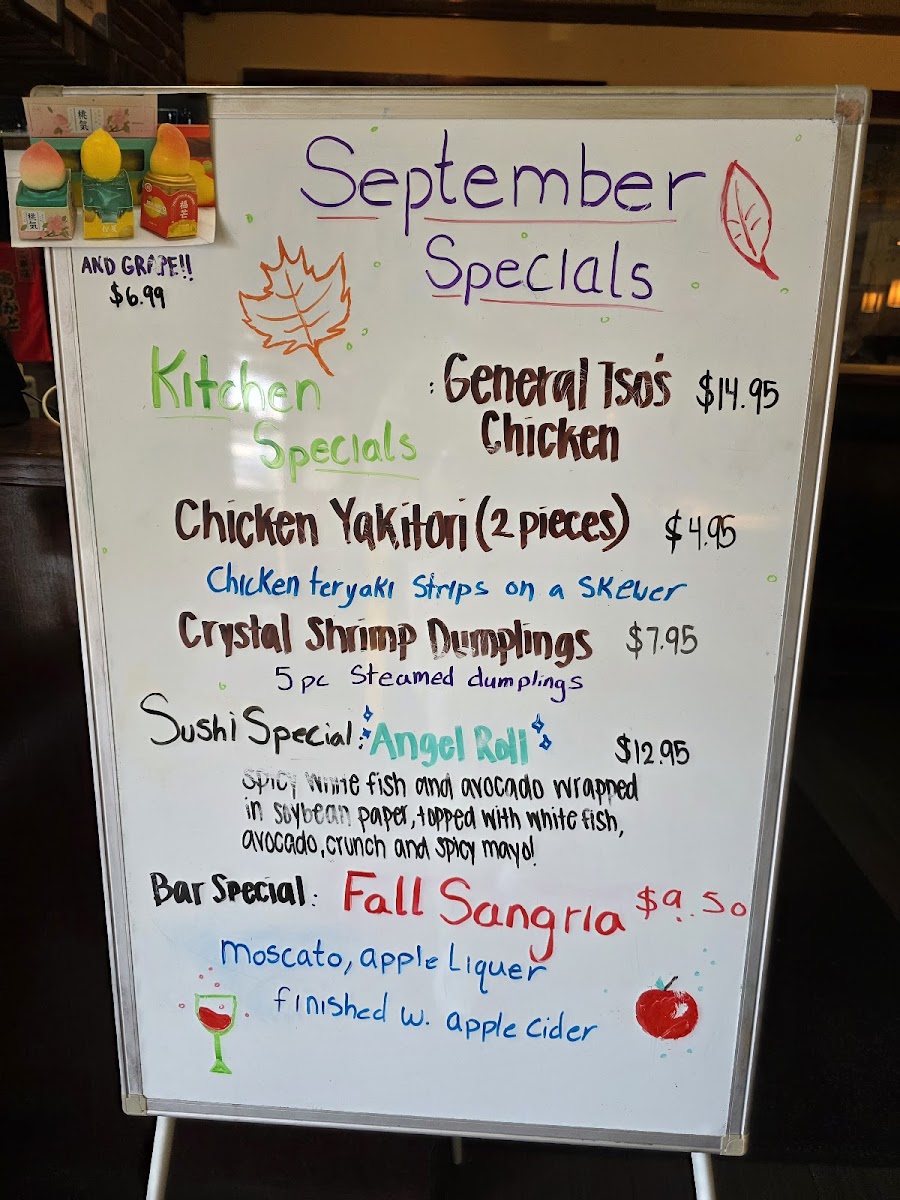 September
Specials
桃気
桃気
福芒
AND GRAPE!!
$6.99
ありがと
Kitchen
Specials
: General Tso's
Chicken
$14.95
Chicken Yakitori (2 pieces) $4.95
Chicken teryaki Strips on a Skewer
Crystal Shrimp Dumplings $7.95
5 pc Steamed dumplings
Sushi Special: Angel Roll $12.95
spicy white fish and avocado wrapped
in soybean paper, topped with white fish,
avocado, crunch and spicy mayo!
Bar Special: Fall Sangria $9.50
moscato, apple Liquer
finished w. apple cider